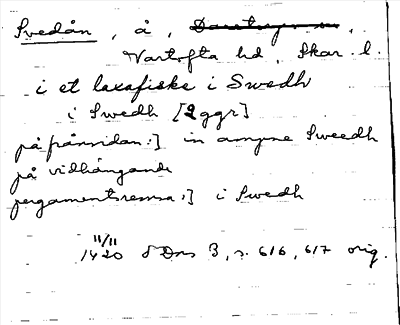 Svedån, å,
Vartofta hd, Skar. l.
i et laxafiske i Swedh
i Swedh [2 ggr]
på frånsidan:] in ampne Sweedh
på vidhängande
pergamentsremsa:] i Swedh
11/11
1420 SDns 3, s. 616, 617 orig.